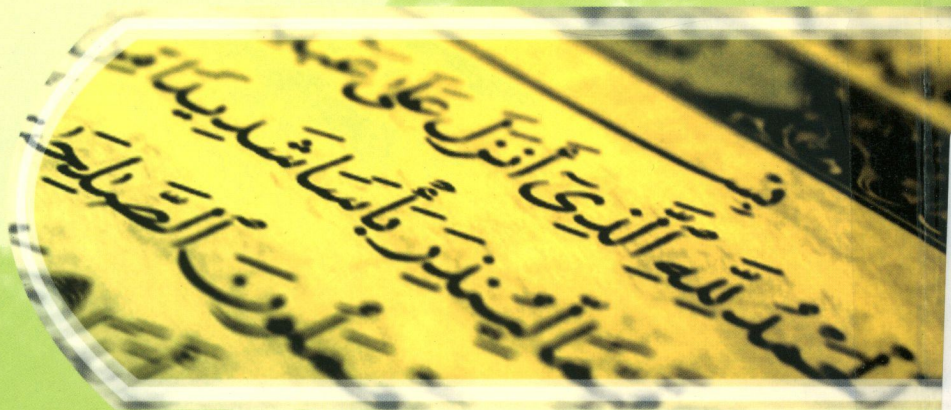 بِسْـ
ٱلْحَمْدُ لِلَّهِ ٱلَّذِىٓ أَنزَلَ عَلَىٰ عَبْدِ
قَيِّمًا لِّيُنذِرَ بَأْسًا شَدِيدًا مِّن
يَعْمَلُونَ ٱلصَّٰلِحَٰ